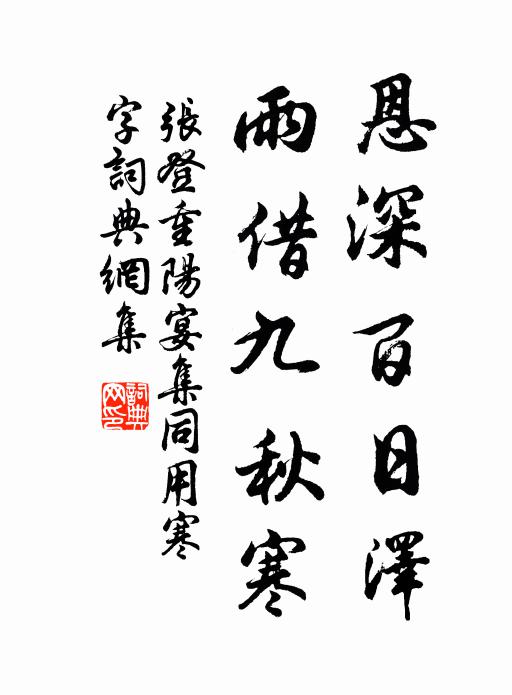 恩深百日澤
雨借九秋寒
張登重陽宴集同用寒
字詞典網集
詞典网印